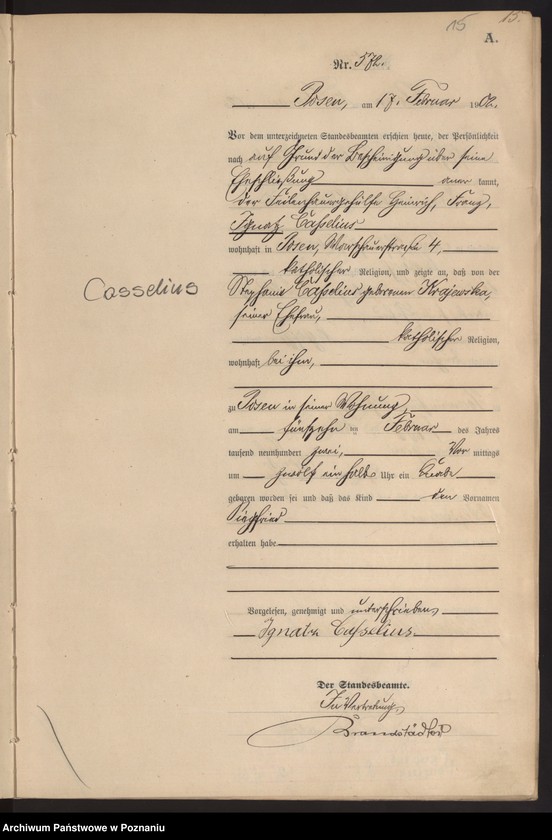 15 15.
A.
Nr. 572.
Posen, am 17. Februar 1902.
Vor dem unterzeichneten Standesbeamten erschien heute, der Persönlichkeit
nach auf Grund der Bescheinigung über seine
Eheschließung anerkannt,
der Feilenhauergehülfe Heinrich, Franz,
Ignatz Casselius
wohnhaft in Posen, Warschauerstraße 4,
katholischer Religion, und zeigte an, daß von der
Casselius
Stephanie Casselius geborenen Krajewska,
seiner Ehefrau,
katholischer Religion,
wohnhaft bei ihm,
zu Posen in seiner Wohnung,
am fünfzehn ten Februar des Jahres
tausend neunhundert zwei, Vor mittags
um zwölf ein halb Uhr ein Knabe
geboren worden sei und daß das Kind den Vornamen
Siegfried
erhalten habe
Vorgelesen, genehmigt und unterschrieben
Ignatz Casselius.
Der Standesbeamte.
In Vertretung.
Brandstädter
Archiwum Państwowe w Poznaniu